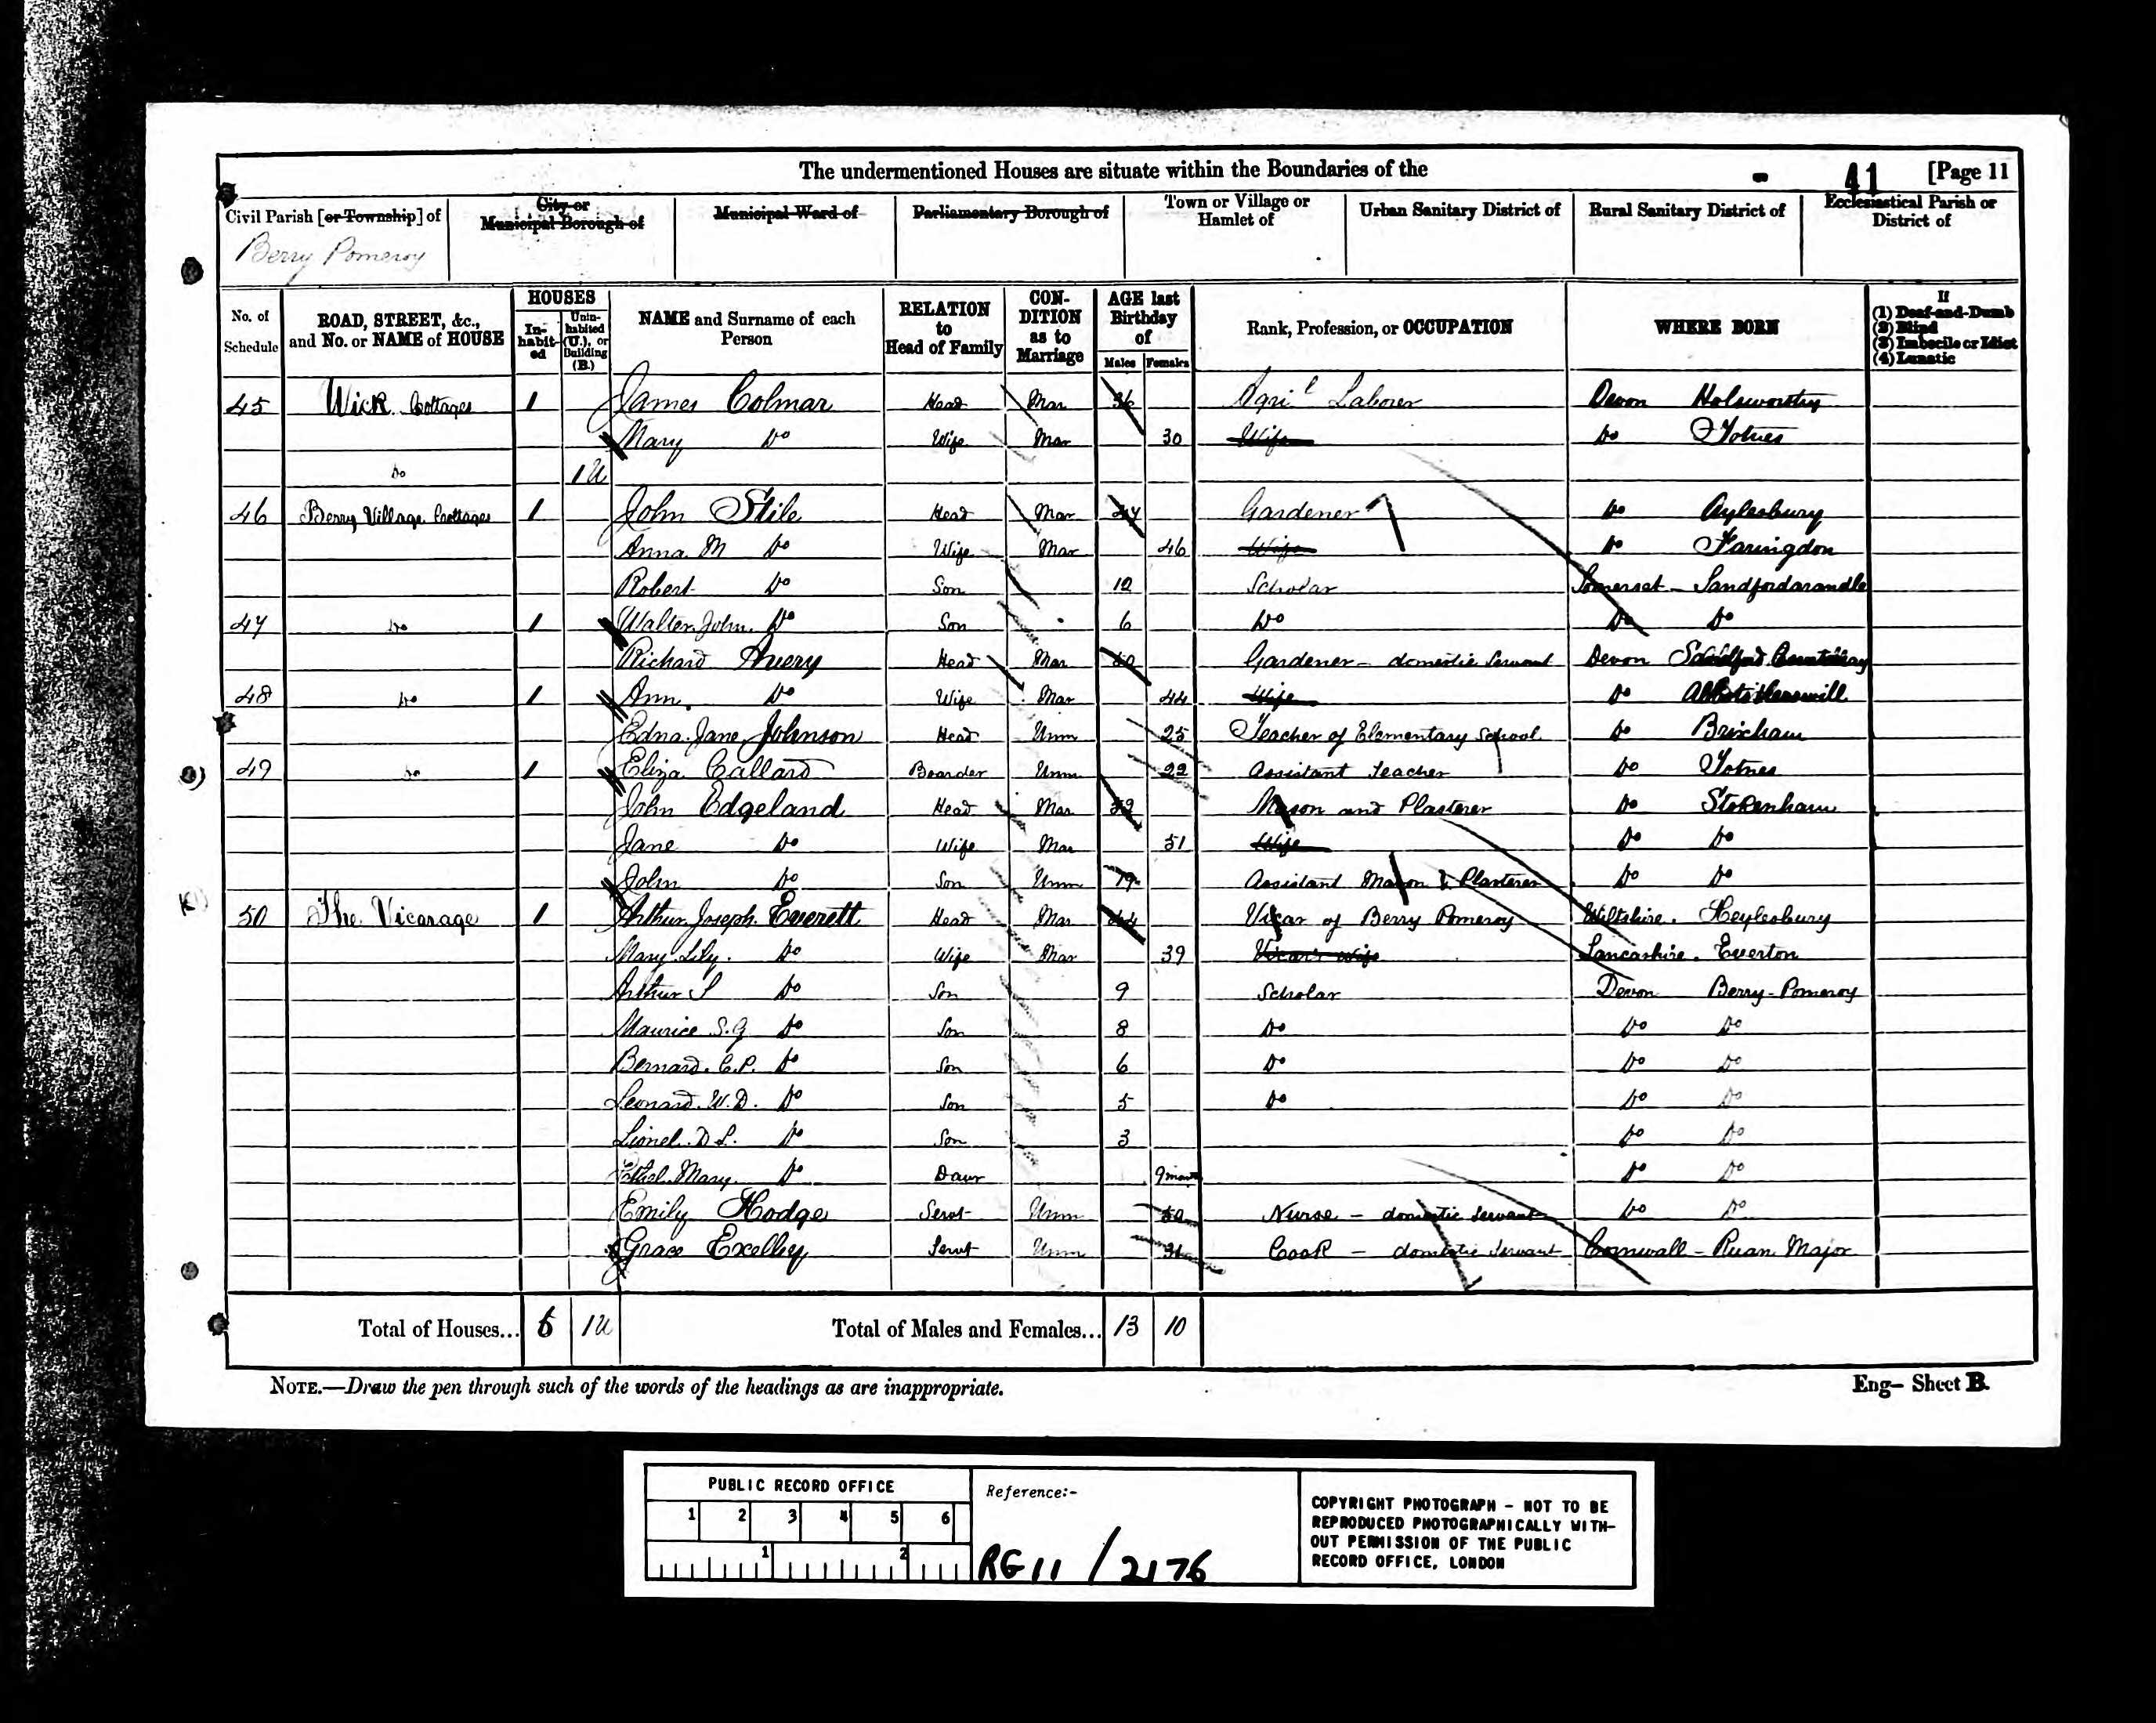 The undermentioned Houses are situate within the Boundaries of the
41 [Page 11
Civil Parish [or Township] of
City or Municipal Borough of
Municipal Ward of
Parliamentary Borough of
Town or Village or Hamlet of
Urban Sanitary District of
Rural Sanitary District of
Ecclesiastical Parish or District of
Berry Pomeroy
No. of Schedule
ROAD, STREET, &c., and No. or NAME of HOUSE
HOUSES
In-habit-ed
Unin-habited (U.), or Building (B.)
NAME and Surname of each Person
RELATION to Head of Family
CON-DITION as to Marriage
AGE last Birthday of
Males Females
Rank, Profession, or OCCUPATION
WHERE BORN
If
(1) Deaf-and-Dumb
(2) Blind
(3) Imbecile or Idiot
(4) Lunatic
45 Wick Cottages 1 James Colmar Head Mar 36 Agril Laborer Devon Holsworthy
Mary Do Wife Mar 30 Wife Do Totnes
Do 1 U
46 Berry Village Cottages 1 John Stile Head Mar Gardener Do Aylesbury
Anna M Do Wife Mar 46 Wife Do Faringdon
Robert Do Son 12 Scholar Somerset - Sandfordarandle
47 Do 1 Walter John Do Son 6 Do Do Do
Richard Avery Head Mar 50 Gardener - domestic Servant Devon
48 Do 1 Ann Do Wife Mar 44 Wife Do
Edna Jane Johnson Head Unm 25 Teacher of Elementary School Do Brixham
49 Do 1 Eliza Callard Boarder Unm 22 Assistant Teacher Do Totnes
John Edgeland Head Mar 52 Mason and Plasterer Do Stokenham
Jane Do Wife Mar 51 Wife Do Do
John Do Son Unm 19 Assistant Mason & Plasterer Do Do
50 The Vicarage 1 Arthur Joseph Everett Head Mar 44 Vicar of Berry Pomeroy Wiltshire. Heylesbury
Mary Lily. Do Wife Mar 39 Vicar's wife Lancashire. Everton
Arthur S Do Son 9 Scholar Devon Berry-Pomeroy
Maurice S.G Do Son 8 Do Do Do
Bernard. C.P. Do Son 6 Do Do Do
Leonard. W.D. Do Son 5 Do Do Do
Lionel. D L. Do Son 3 Do Do
Ethel Mary. Do Daur 9 mont Do Do
Emily Hodge Servt Unm 50 Nurse - domestic Servant Do Do
Grace Exelby Servt Unm 31 Cook - domestic Servant Cornwall - Ruan Major
Total of Houses... 6 1 U Total of Males and Females... 13 10
NOTE.—Draw the pen through such of the words of the headings as are inappropriate.
Eng- Sheet B.
PUBLIC RECORD OFFICE
1 2 3 4 5 6
1 2
Reference:-
RG 11 / 2176
COPYRIGHT PHOTOGRAPH - NOT TO BE
REPRODUCED PHOTOGRAPHICALLY WITH-
OUT PERMISSION OF THE PUBLIC
RECORD OFFICE, LONDON